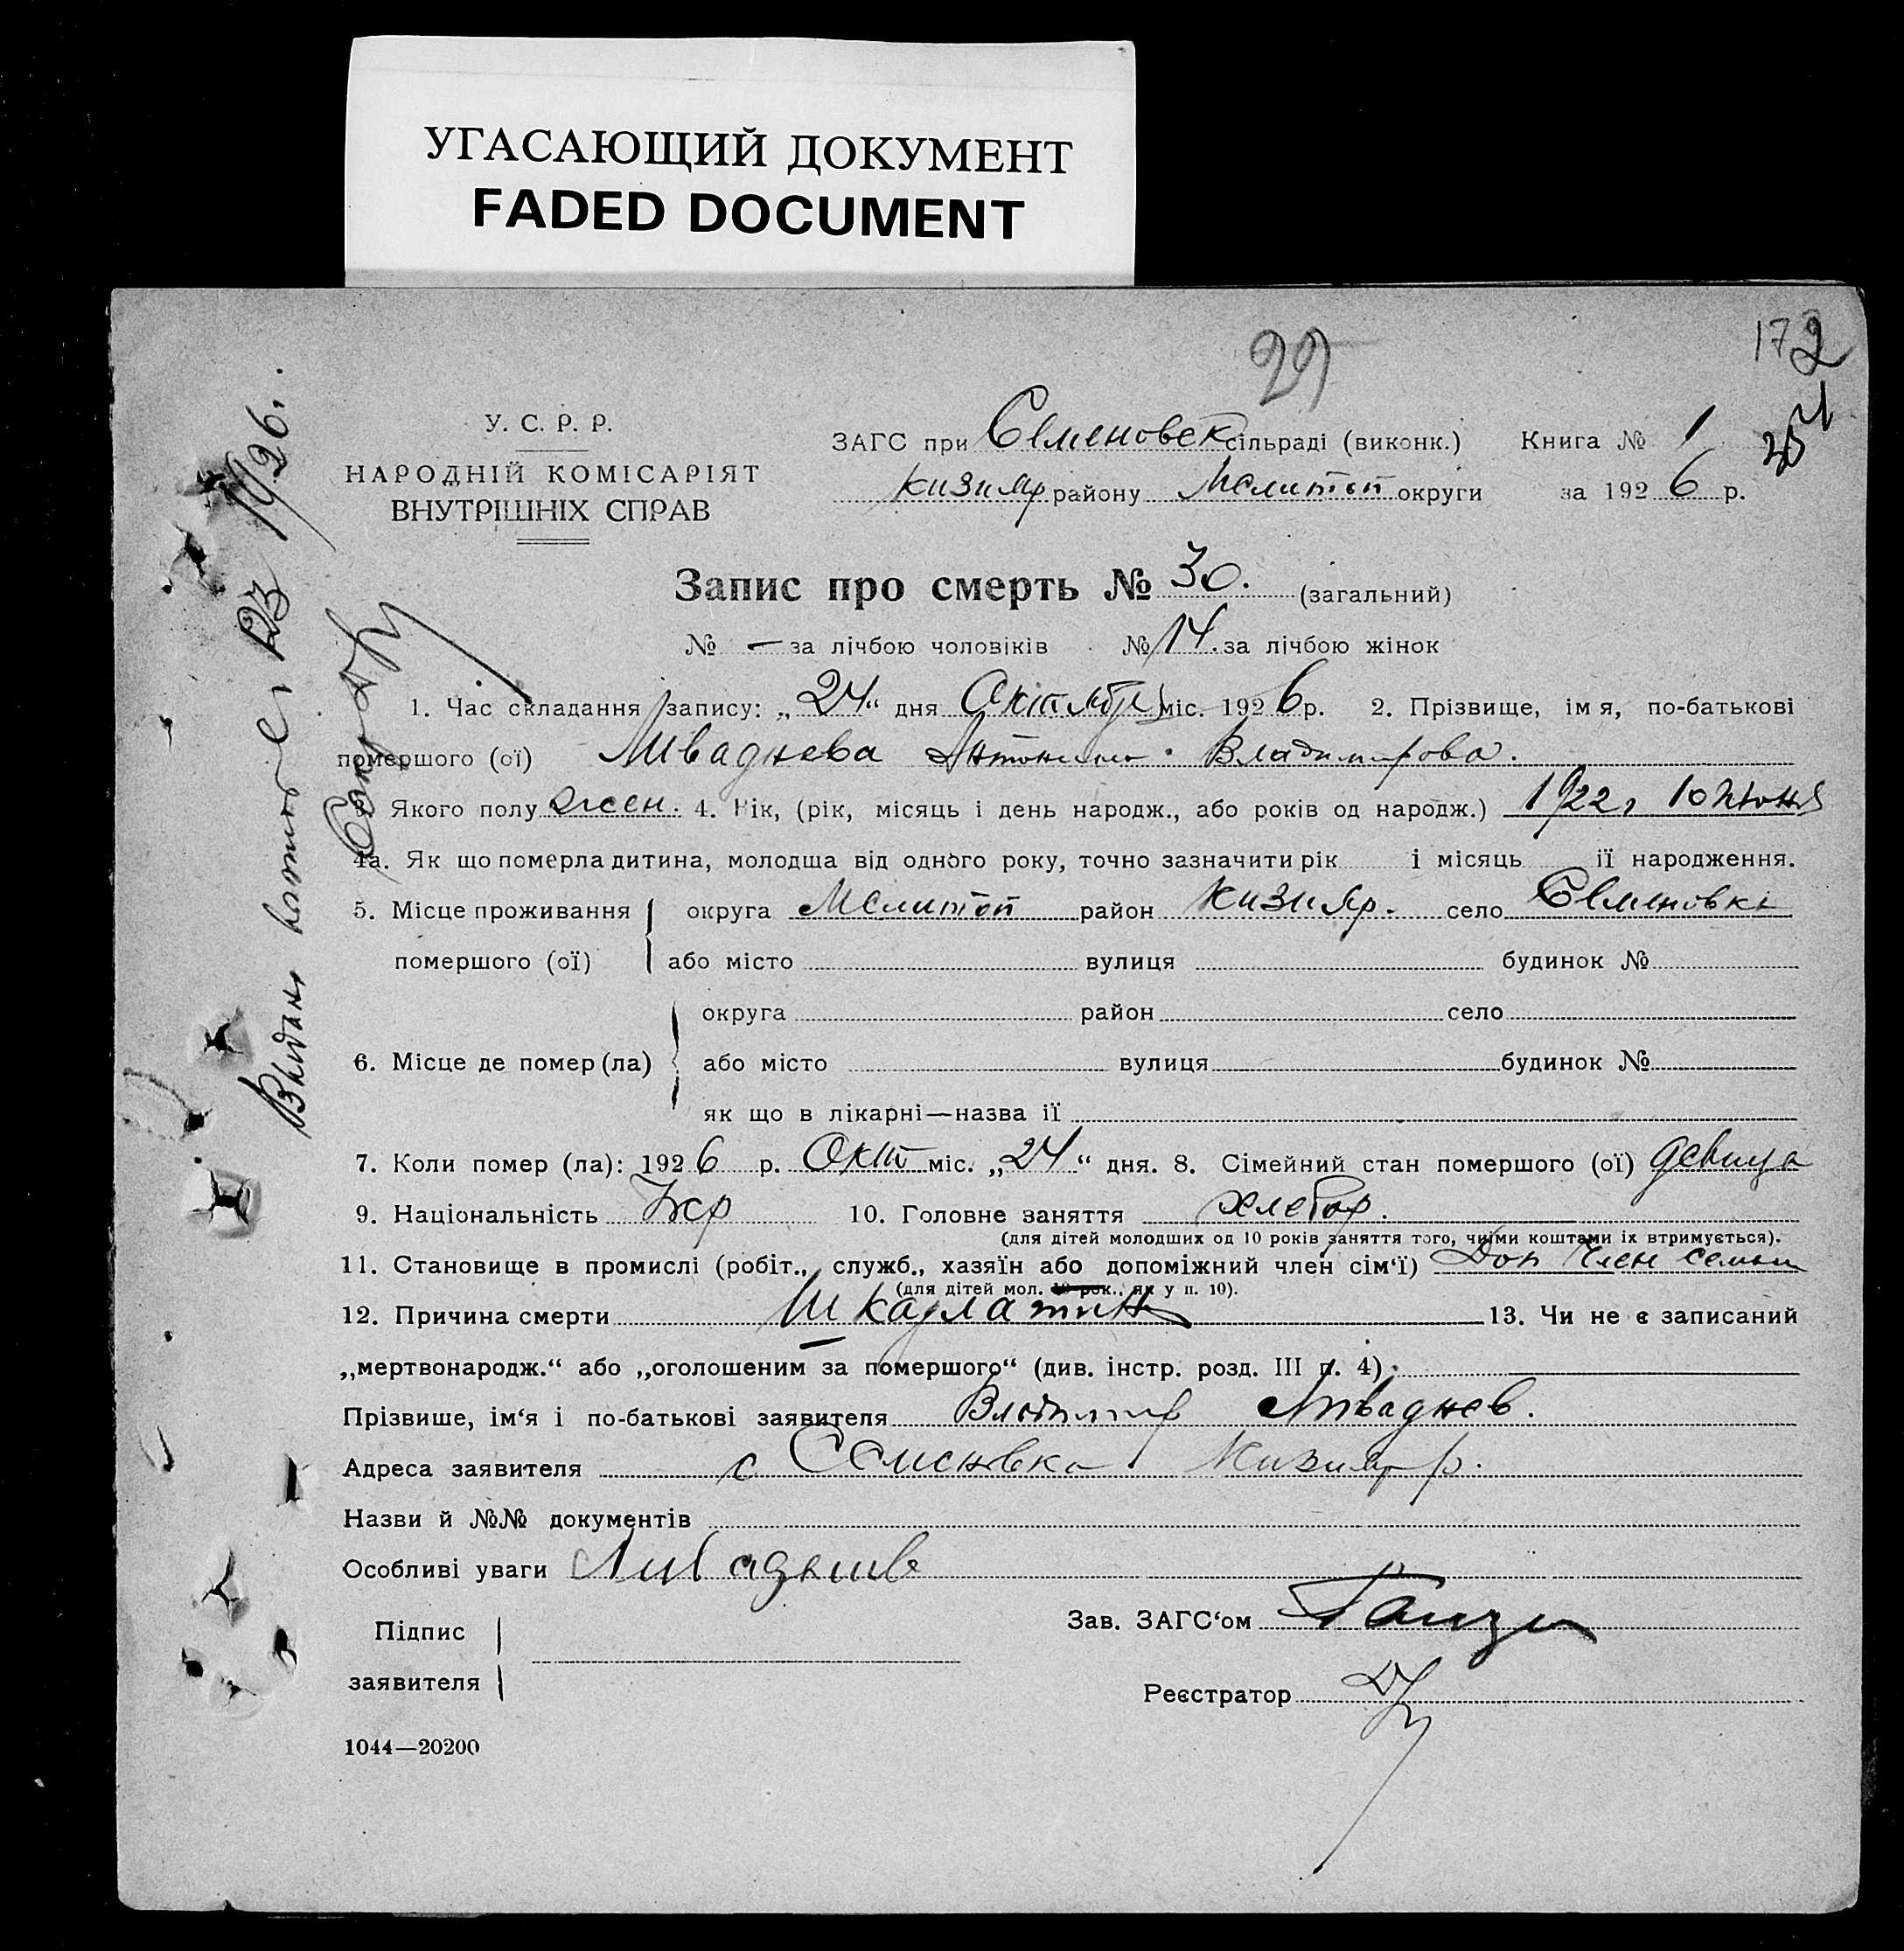 УГАСАЮЩИЙ ДОКУМЕНТ
FADED DOCUMENT
172
29
У. С. Р. Р.
НАРОДНІЙ КОМІСАРІЯТ
ВНУТРІШНІХ СПРАВ
ЗАГС при Семеновск сільраді (виконк.) Книга № 1
Кизияр району Мелитоп округи за 1926 р.
Запис про смерть № 30. (загальний)
№ — за лічбою чоловіків № 14. за лічбою жінок
1. Час складання запису: „24“ дня Октября міс. 1926 р. 2. Прізвище, імя, по-батькові
помершого (ої) Ливаднева Антонина Владимирова.
3. Якого полу жен. 4. Вік, (рік, місяць і день народж., або років од народж.) 1922 г 10 июня
4а. Як що померла дитина, молодша від одного року, точно зазначити рік і місяць ії народження.
5. Місце проживання округа Мелитоп район Кизияр. село Семеновка
помершого (ої) або місто вулиця будинок №
округа район село
6. Місце де помер (ла) або місто вулиця будинок №
як що в лікарні—назва ії
7. Коли помер (ла): 1926 р. Окт міс. „24“ дня. 8. Сімейний стан помершого (ої) девица
9. Національність Укр 10. Головне заняття хлебор.
(для дітей молодших од 10 років заняття того, чиїми коштами їх втримується).
11. Становище в промислі (робіт., служб., хазяїн або допоміжний член сім‘ї) Доп член семьи
(для дітей мол. 10 рок., як у п. 10).
12. Причина смерти Шкарлатин 13. Чи не є записаний
„мертвонародж.“ або „оголошеним за помершого“ (див. інстр. розд. III п. 4) —
Прізвище, ім‘я і по-батькові заявителя Владимир Ливаднев.
Адреса заявителя с Семеновка Кизияр р.
Назви й №№ документів
Особливі уваги Ливаднев
Підпис
заявителя
Зав. ЗАГС‘ом
Реєстратор
1044—20200
1926 г.